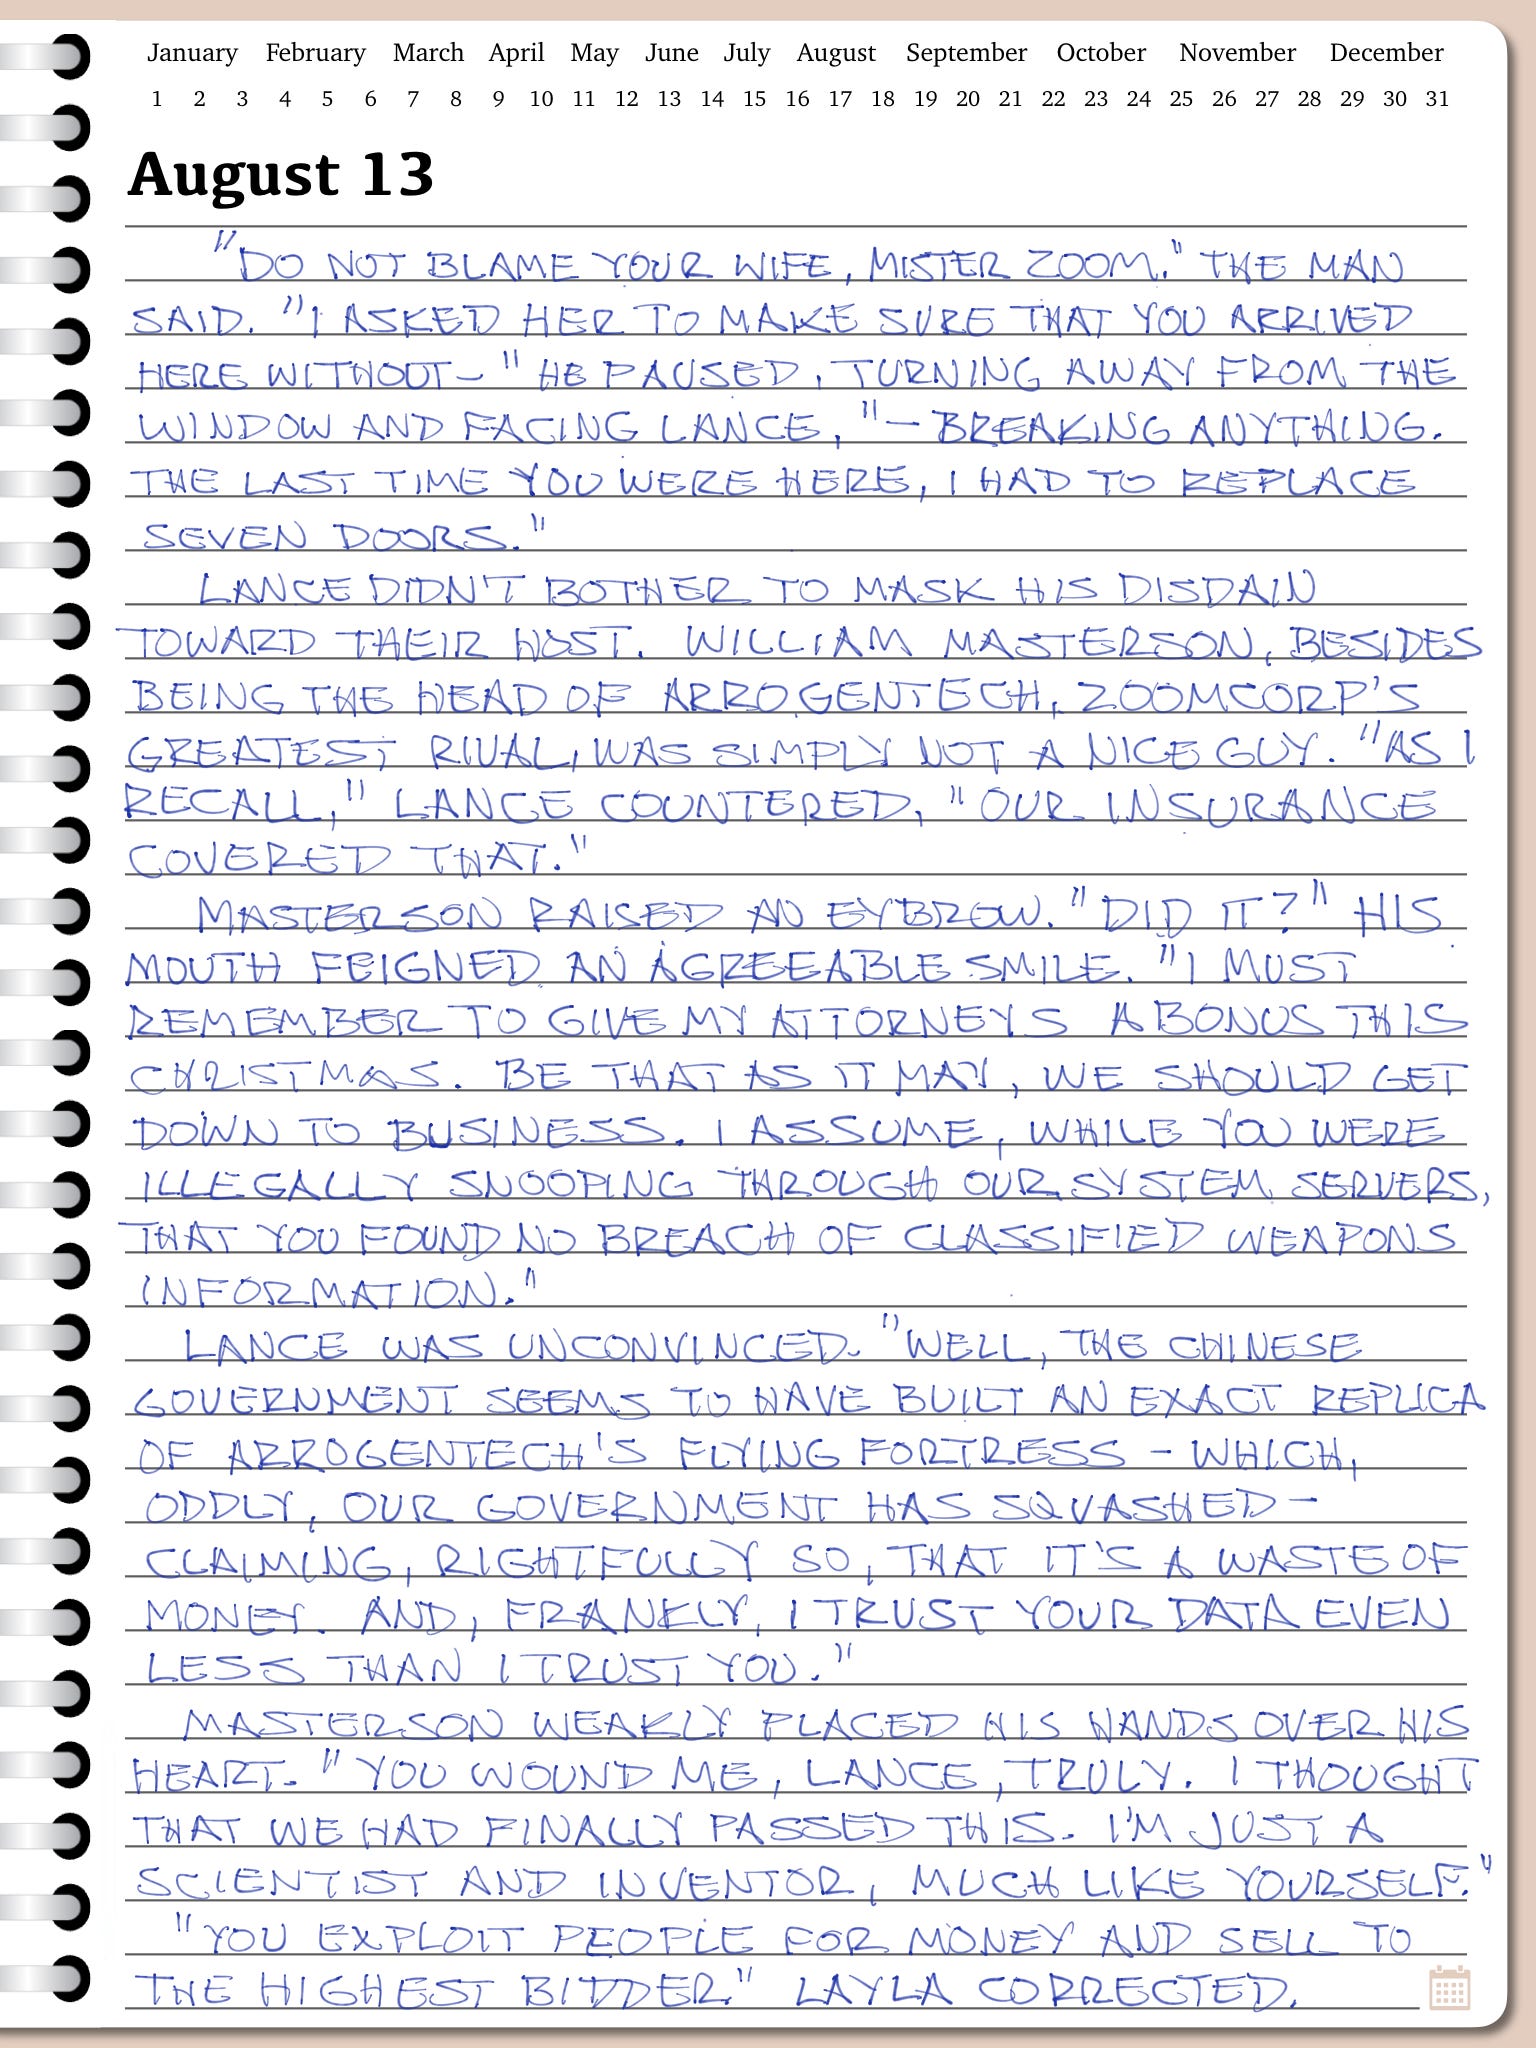 January February March April May June July August September October November December
1 2 3 4 5 6 7 8 9 10 11 12 13 14 15 16 17 18 19 20 21 22 23 24 25 26 27 28 29 30 31
August 13
"DO NOT BLAME YOUR WIFE, MISTER ZOOM." THE MAN
SAID. "I ASKED HER TO MAKE SURE THAT YOU ARRIVED
HERE WITHOUT—" HE PAUSED, TURNING AWAY FROM THE
WINDOW AND FACING LANCE, "—BREAKING ANYTHING.
THE LAST TIME YOU WERE HERE, I HAD TO REPLACE
SEVEN DOORS."
LANCE DIDN'T BOTHER TO MASK HIS DISDAIN
TOWARD THEIR HOST. WILLIAM MASTERSON, BESIDES
BEING THE HEAD OF ARROGENTECH, ZOOMCORP'S
GREATEST RIVAL, WAS SIMPLY NOT A NICE GUY. "AS I
RECALL," LANCE COUNTERED, "OUR INSURANCE
COVERED THAT."
MASTERSON RAISED AN EYBROW. "DID IT?" HIS
MOUTH FEIGNED AN AGREEABLE SMILE. "I MUST
REMEMBER TO GIVE MY ATTORNEYS A BONUS THIS
CHRISTMAS. BE THAT AS IT MAY, WE SHOULD GET
DOWN TO BUSINESS. I ASSUME, WHILE YOU WERE
ILLEGALLY SNOOPING THROUGH OUR SYSTEM SERVERS,
THAT YOU FOUND NO BREACH OF CLASSIFIED WEAPONS
INFORMATION."
LANCE WAS UNCONVINCED. "WELL, THE CHINESE
GOVERNMENT SEEMS TO HAVE BUILT AN EXACT REPLICA
OF ARROGENTECH'S FLYING FORTRESS – WHICH,
ODDLY, OUR GOVERNMENT HAS SQUASHED –
CLAIMING, RIGHTFULLY SO, THAT IT'S A WASTE OF
MONEY. AND, FRANKLY, I TRUST YOUR DATA EVEN
LESS THAN I TRUST YOU."
MASTERSON WEAKLY PLACED HIS HANDS OVER HIS
HEART. "YOU WOUND ME, LANCE, TRULY. I THOUGHT
THAT WE HAD FINALLY PASSED THIS. I'M JUST A
SCIENTIST AND INVENTOR, MUCH LIKE YOURSELF."
"YOU EXPLOIT PEOPLE FOR MONEY AND SELL TO
THE HIGHEST BIDDER." LAYLA CORRECTED.